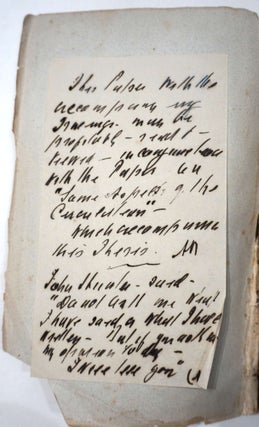 This Paper with the
accompanying
Tracings may be
profitably - read & -
viewed - in conjunction
with the Paper on
"Some Aspects of the
Circulation" -
which accompanies
this Thesis.
John Hunter - said -
"Do not ask me what
I have said or what I have
written - but if you ask me
my opinion today -
I will tell you"